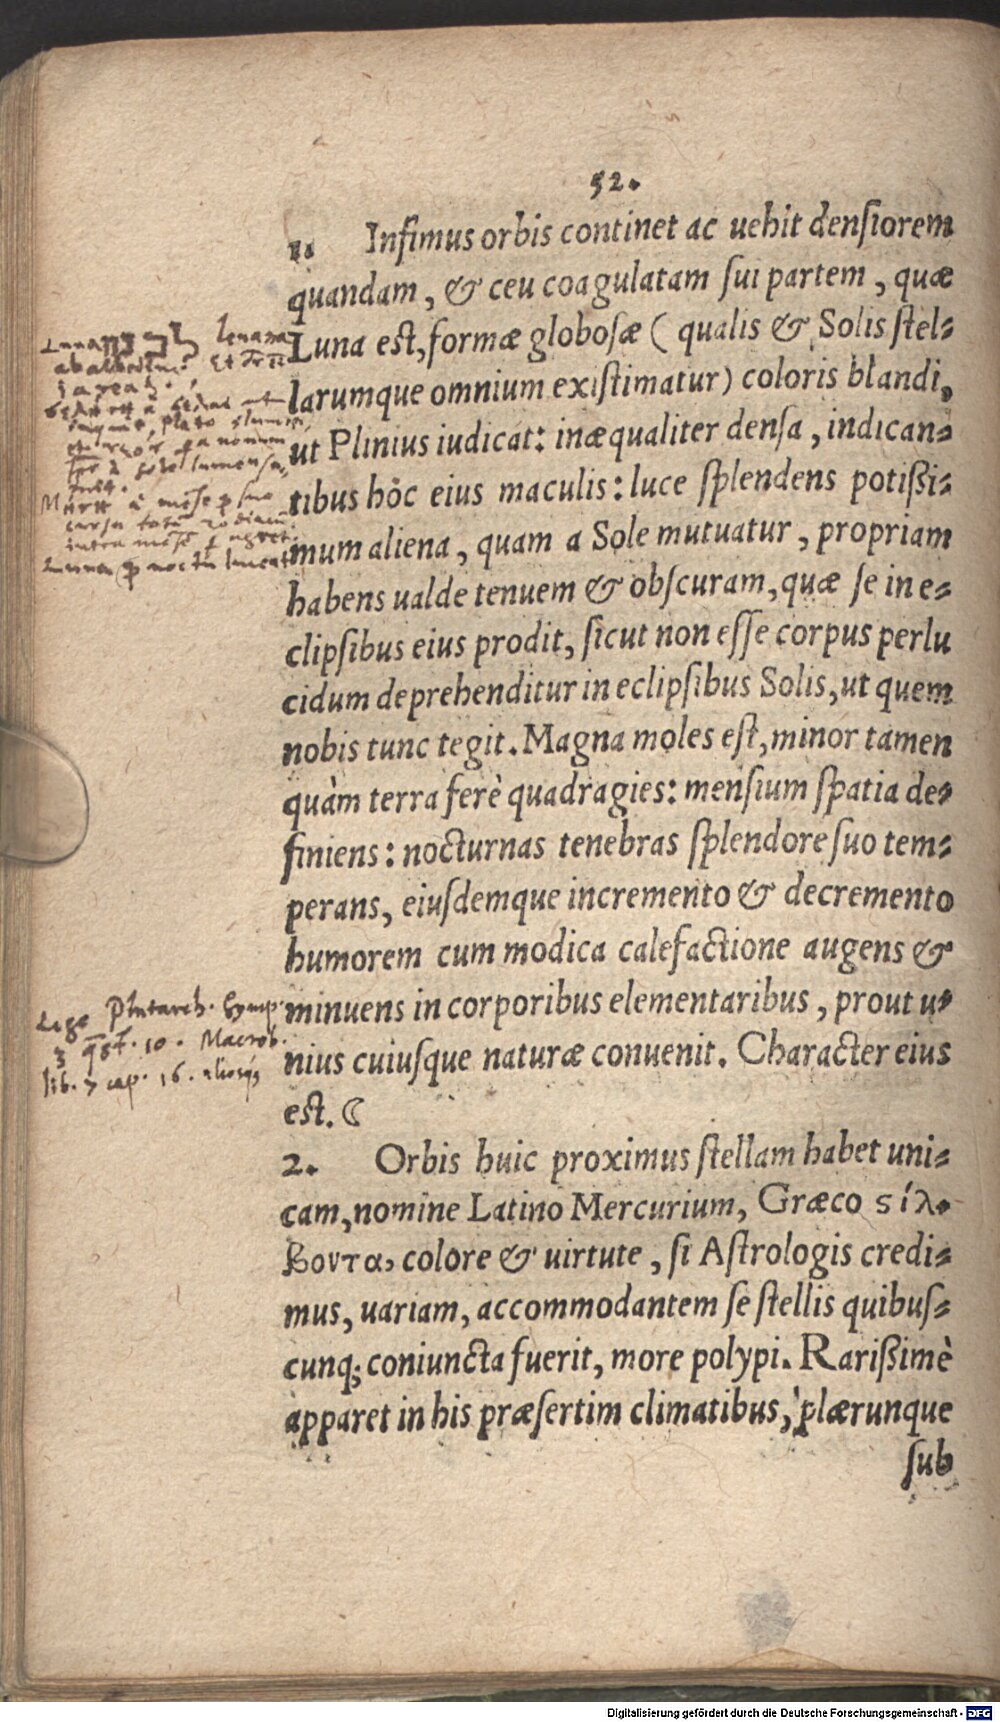 52.
1. Infimus orbis continet ac uehit densiorem
quandam, & ceu coagulatam sui partem, quæ
Luna est, formæ globosæ ( qualis & Solis stel-
larumque omnium existimatur) coloris blandi,
ut Plinius iudicat: inæqualiter densa, indican-
tibus hôc eius maculis: luce splendens potißi-
mum aliena, quam a Sole mutuatur, propriam
habens ualde tenuem & obscuram, quæ se in e-
clipsibus eius prodit, sicut non esse corpus perlu
cidum deprehenditur in eclipsibus Solis, ut quem
nobis tunc tegit. Magna moles est, minor tamen
quàm terra ferè quadragies: mensium spatia de-
finiens: nocturnas tenebras splendore suo tem-
perans, eiusdemque incremento & decremento
humorem cum modica calefactione augens &
minuens in corporibus elementaribus, prout u-
nius cuiusque naturæ conuenit. Character eius
est. ☾
2. Orbis huic proximus stellam habet uni-
cam, nomine Latino Mercurium, Græco ςίλ-
βοντα, colore & uirtute, si Astrologis credi-
mus, uariam, accommodantem se stellis quibus-
cunq; coniuncta fuerit, more polypi. Rarißimè
apparet in his præsertim climatibus, plærunque
sub
Lege Plutarch. Symp.
3 quest. 10. Macrob.
lib. 7 cap. 16. aliosq
Digitalisierung gefördert durch die Deutsche Forschungsgemeinschaft - DFG